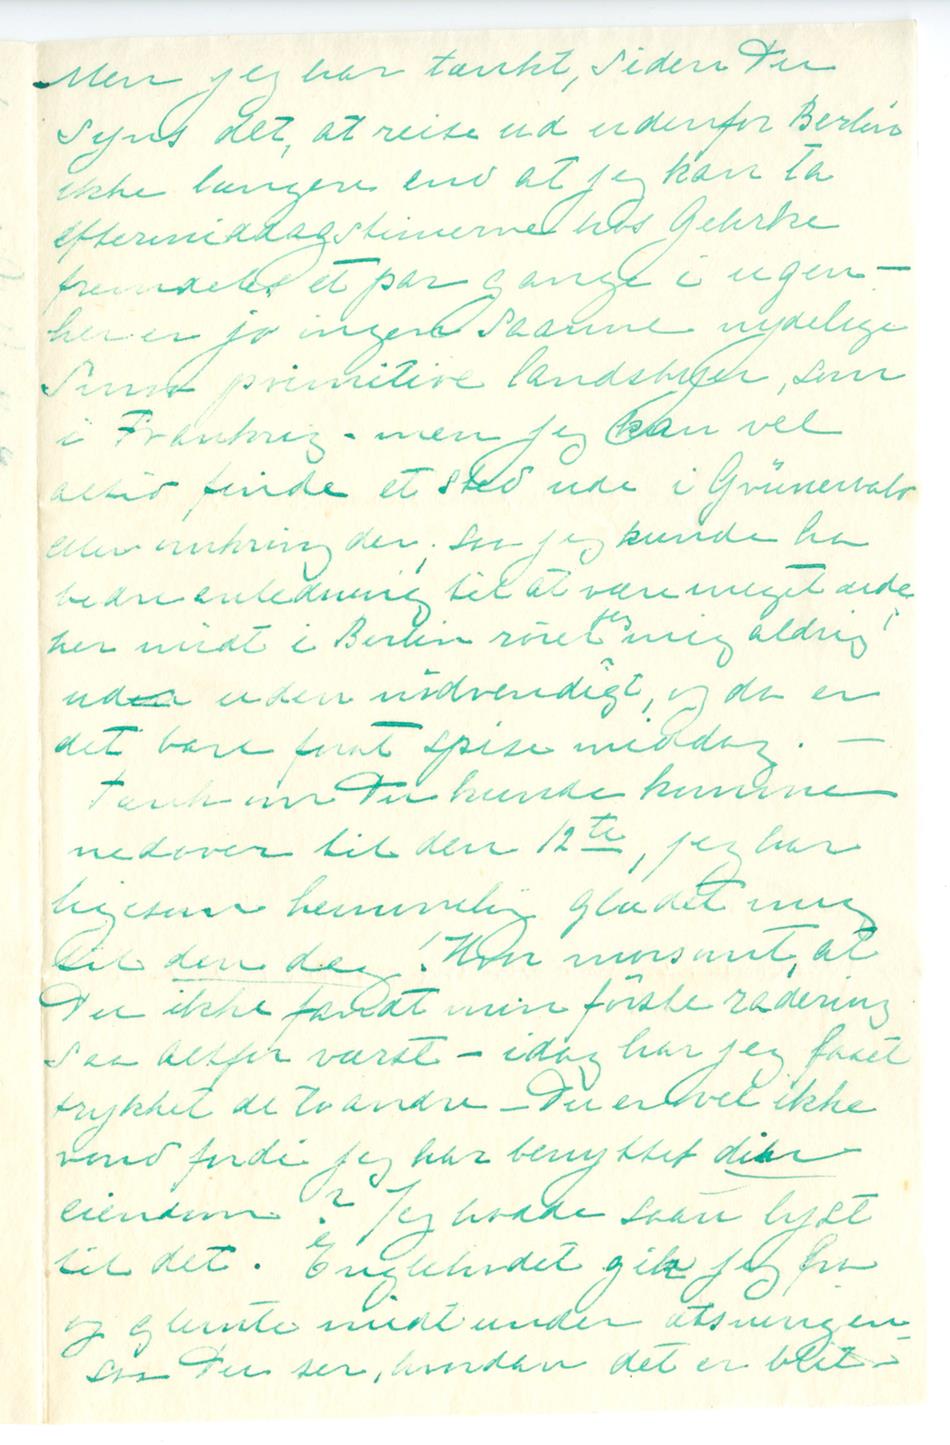 Men jeg har tænkt, siden Du
syns det, at reise ud udenfor Berlin
ikke længere end at jeg kan ta
eftermiddagstimerne hos Gehrke
fremdeles et par gange i ugen –
her er jo ingen saanne nydelige
smaa primitive landsbyer, som
i Frankrig – men jeg kan vel
altid finde et sted ude i Grünewald
eller omkring der, saa jeg kunde ha
bedre anledning til at være meget ude,
her midt i Berlin rører jeg mig aldrig
ud uden nødvendigt, og da er
det bare forat spise middag. –
Tænk om Du kunde komme
nedover til den 12te, jeg har
ligesom hemmelig glædet mig
til den dag! Hvor morsomt, at
Du ikke fandt min første radering
saa altfor værst – idag har jeg faaet
trykket de to andre – Du er vel ikke
vond fordi jeg har benyttet din
eiendom? Jeg hadde saan lyst
til det. Englehodet gik jeg fra
og glemte midt under ætsningen –
saa Du ser, hvordan det er blit –